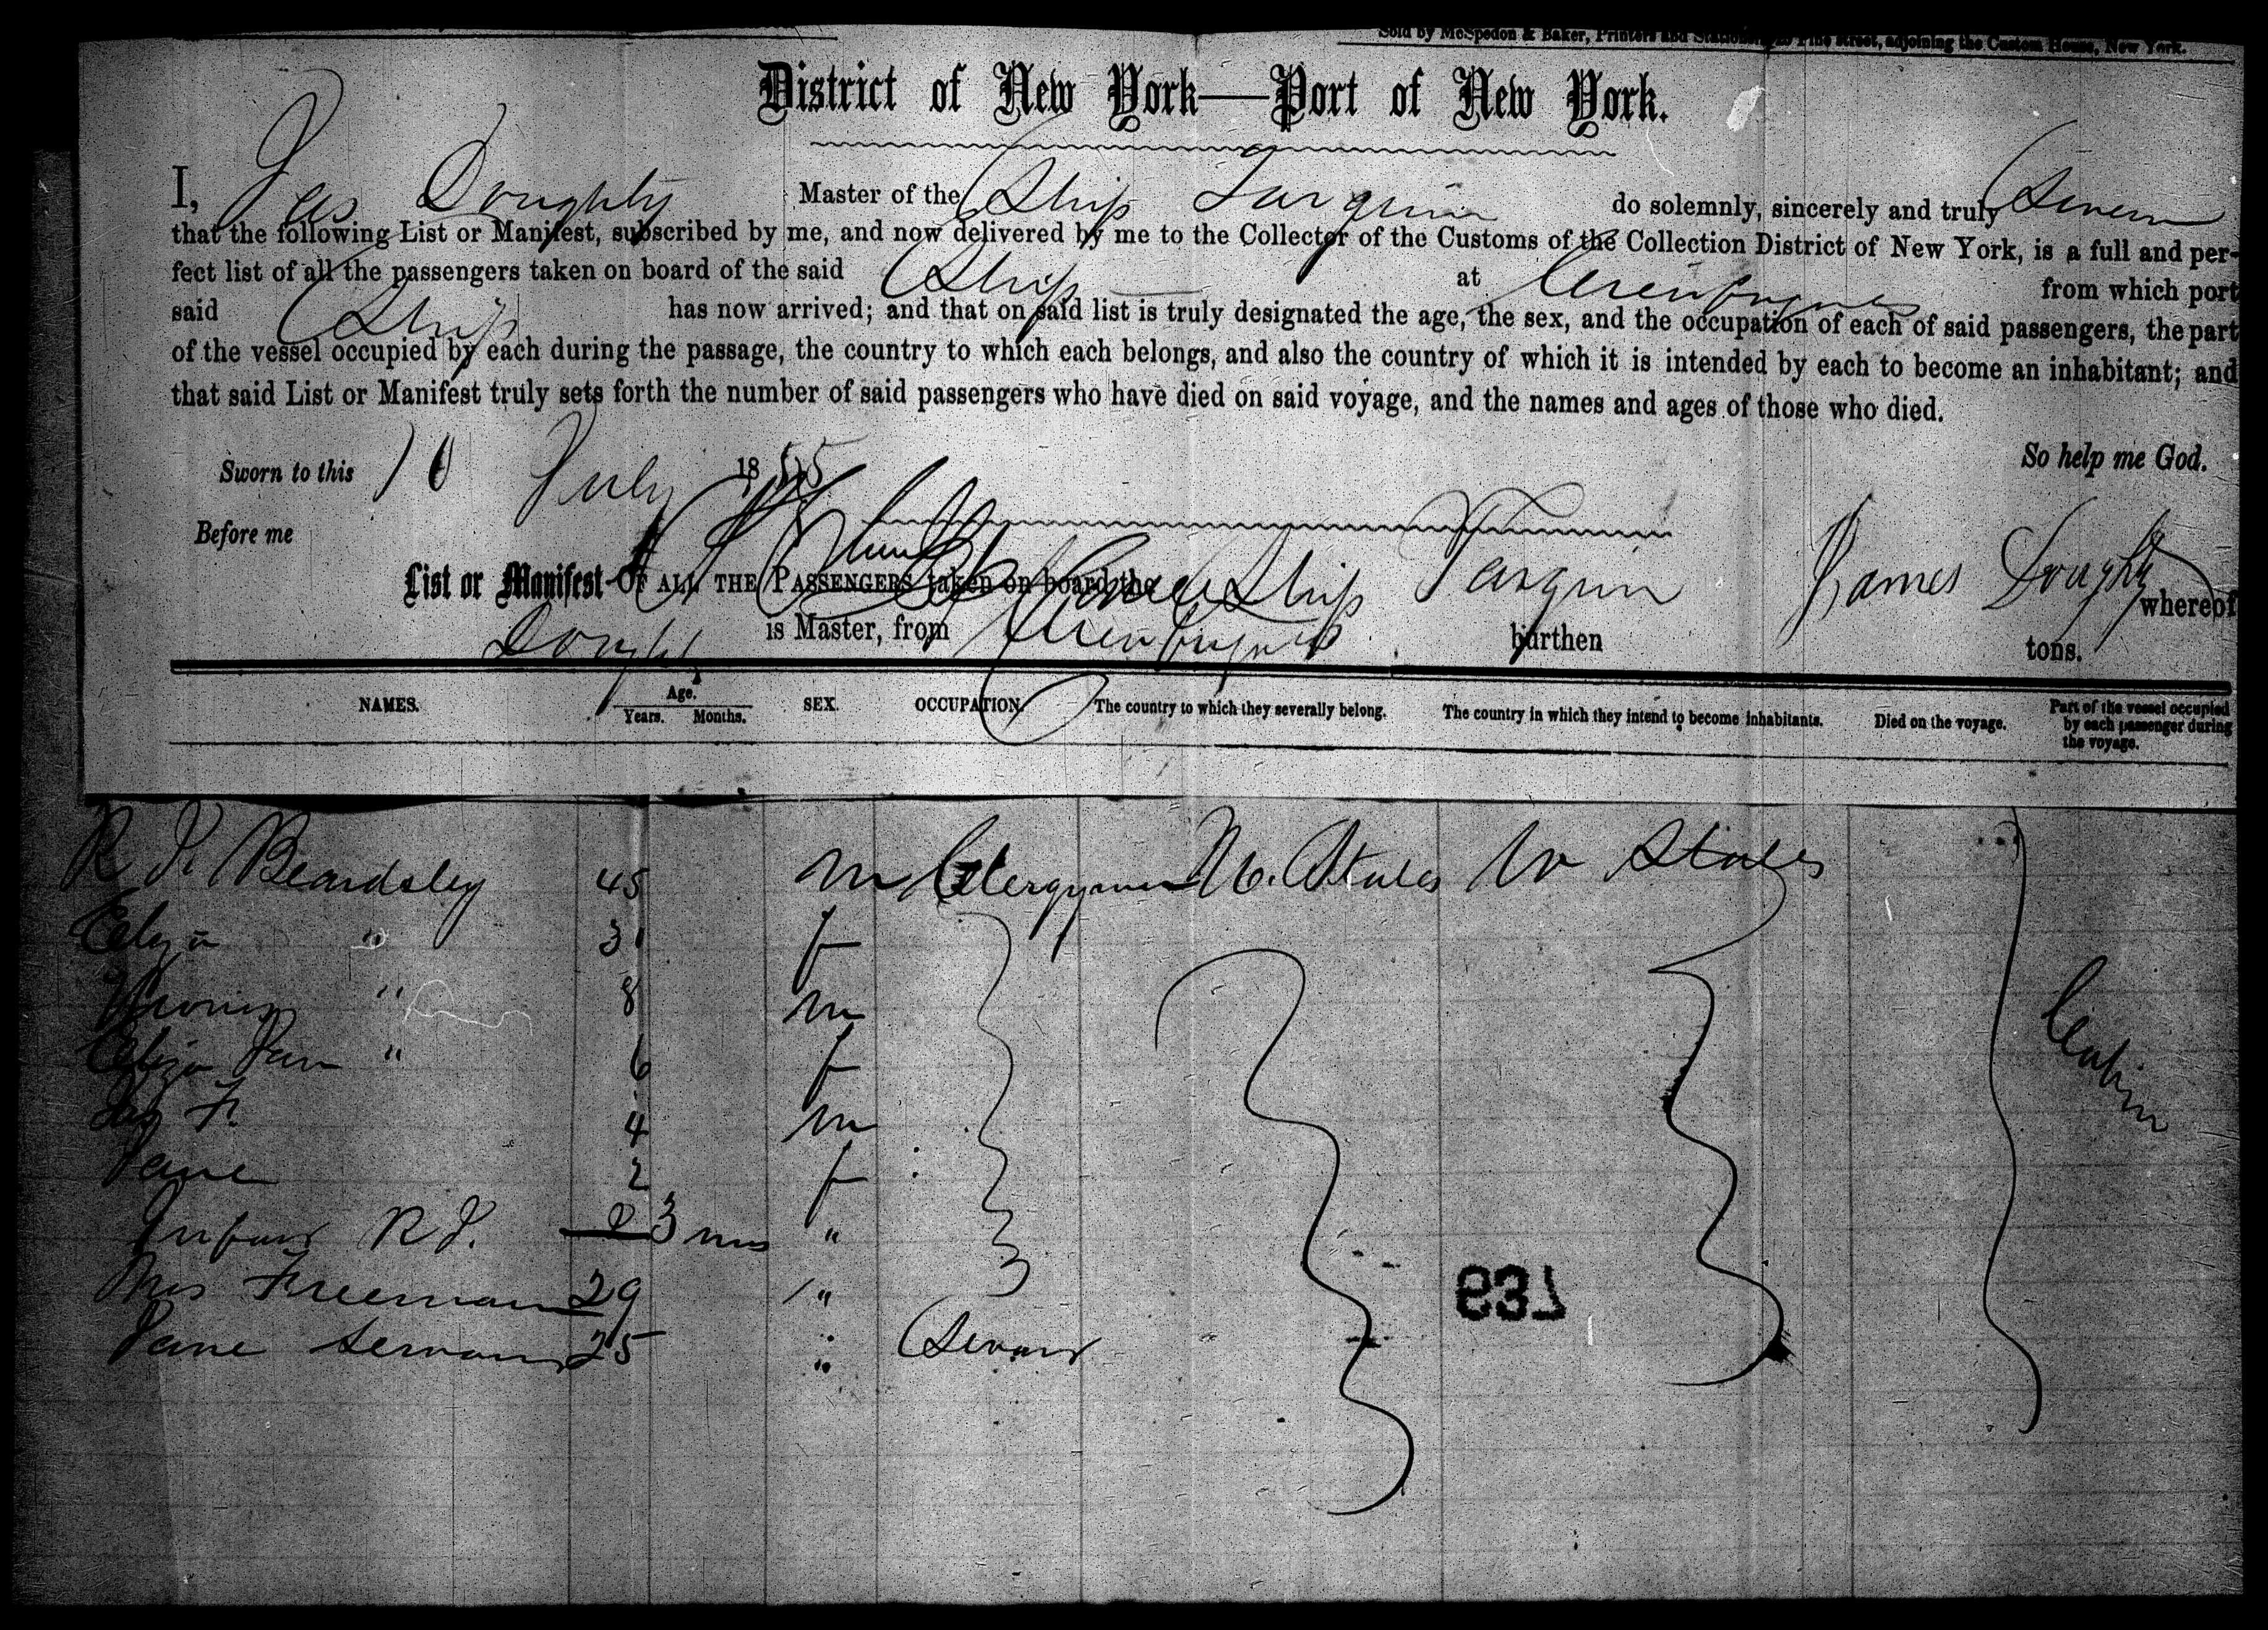 Sold by McSpedon & Baker, Printers and Pine street, adjoining the Custom House, New York.
District of New York—Port of New York.
I, Jas Doughty Master of the Ship Tarquin do solemnly, sincerely and truly Swear
that the following List or Manifest, subscribed by me, and now delivered by me to the Collector of the Customs of the Collection District of New York, is a full and per-
fect list of all the passengers taken on board of the said Ship at Cienfuegos from which port
said Ship has now arrived; and that on said list is truly designated the age, the sex, and the occupation of each of said passengers, the part
of the vessel occupied by each during the passage, the country to which each belongs, and also the country of which it is intended by each to become an inhabitant; and
that said List or Manifest truly sets forth the number of said passengers who have died on said voyage, and the names and ages of those who died.
So help me God.
Sworn to this 10 July 1855
Before me James Doughty
List or Manifest OF ALL THE PASSENGERS taken on board the Ship Tarquin whereof
Doughty is Master, from Cienfuegos burthen tons.
NAMES. Age. Years. Months. SEX. OCCUPATION. The country to which they severally belong. The country in which they intend to become inhabitants. Died on the voyage. Part of the vessel occupied by each passenger during the voyage.
R J. Beardsley 45 m Clergyman U. States U States
Eliza " 31 f
" 8 m
Eliza Jane " 6 f Cabin
Jas F. 4 m
Jane 2 f
Infant R J. 3 ms "
Mrs Freeman 29 "
Jane Servant 25 " Servant
637